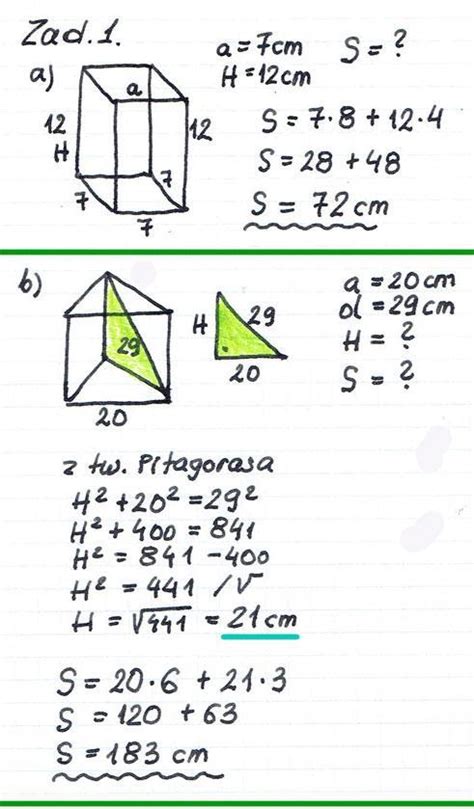 Zad.1.
a = 7cm S = ?
a) a H = 12cm
12 H 12
7 7 7
S = 7·8 + 12·4
S = 28 + 48
S = 72 cm
b)
29
20
H 29
20
a = 20cm
d = 29cm
H = ?
S = ?
z tw. Pitagorasa
H² + 20² = 29²
H² + 400 = 841
H² = 841 - 400
H² = 441 /√
H = √441 = 21 cm
S = 20·6 + 21·3
S = 120 + 63
S = 183 cm